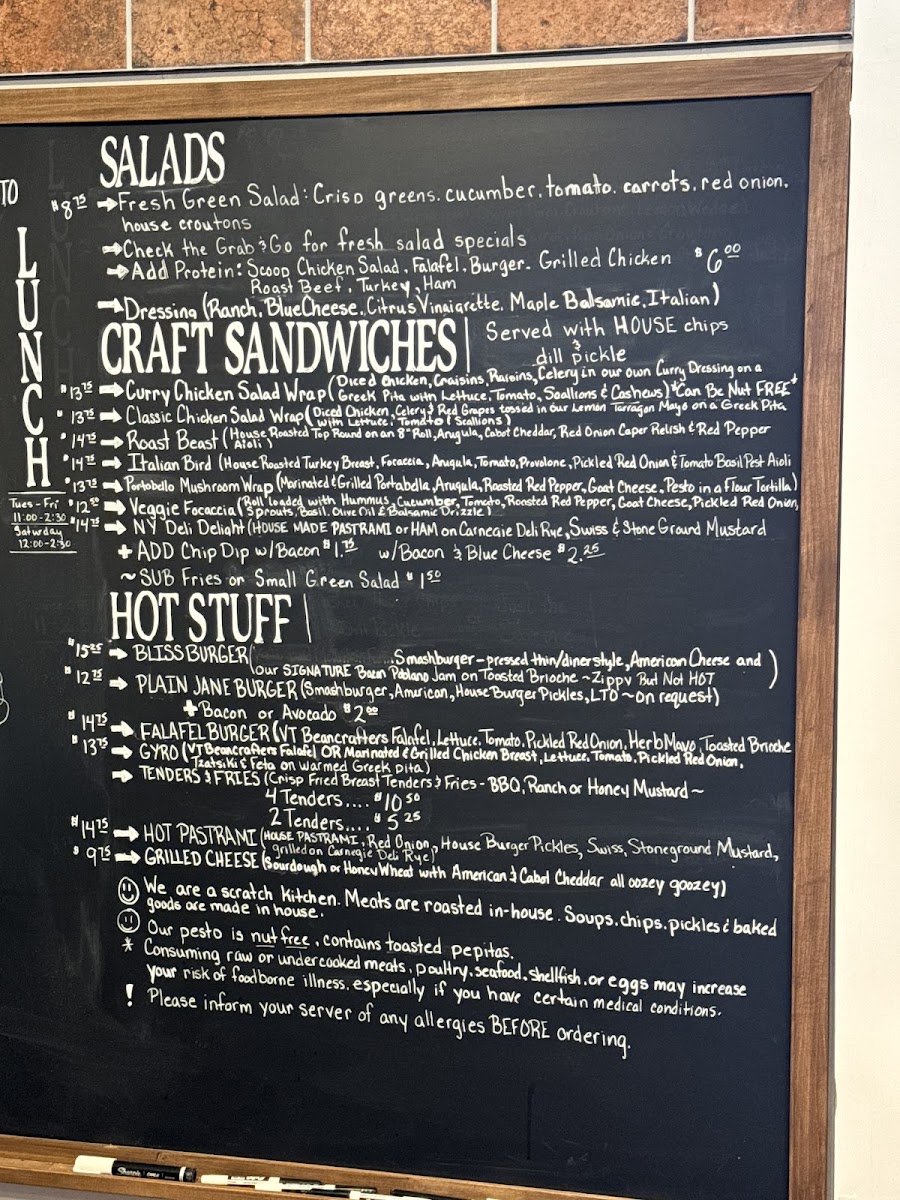 TO
LUNCH
Tues - Fri
11:00-2:30
Saturday
12:00-2:30
SALADS
$8.75 → Fresh Green Salad: Crisp greens, cucumber, tomato, carrots, red onion,
house croutons
→ Check the Grab & Go for fresh salad specials
→ Add Protein: Scoop Chicken Salad, Falafel, Burger, Grilled Chicken $6.00
Roast Beef, Turkey, Ham
→ Dressing (Ranch, Blue Cheese, Citrus Vinaigrette, Maple Balsamic, Italian)
CRAFT SANDWICHES | Served with HOUSE chips
& dill pickle
$13.75 → Curry Chicken Salad Wrap (Diced Chicken, Craisins, Raisins, Celery in our own Curry Dressing on a
Greek Pita with Lettuce, Tomato, Scallions & Cashews) *Can Be Nut FREE*
$13.75 → Classic Chicken Salad Wrap (Diced Chicken, Celery & Red Grapes tossed in our Lemon Tarragon Mayo on a Greek Pita
with Lettuce, Tomato & Scallions)
$14.75 → Roast Beast (House Roasted Top Round on an 8" Roll, Arugula, Cabot Cheddar, Red Onion Caper Relish & Red Pepper
Aioli)
$14.75 → Italian Bird (House Roasted Turkey Breast, Focaccia, Arugula, Tomato, Provolone, Pickled Red Onion & Tomato Basil Pest Aioli
$13.75 → Portobello Mushroom Wrap (Marinated & Grilled Portabella, Arugula, Roasted Red Pepper, Goat Cheese, Pesto in a Flour Tortilla)
$12.50 → Veggie Focaccia (Roll loaded with Hummus, Cucumber, Tomato, Roasted Red Pepper, Goat Cheese, Pickled Red Onion,
Sprouts, Basil, Olive Oil & Balsamic Drizzle)
$14.75 → NY Deli Delight (HOUSE MADE PASTRAMI or HAM on Carnegie Deli Rye, Swiss & Stone Ground Mustard
+ ADD Chip Dip w/Bacon $1.75 w/Bacon & Blue Cheese $2.25
~ SUB Fries or Small Green Salad $1.50
HOT STUFF |
$15.25 → BLISS BURGER (Smashburger - pressed thin/diner style, American Cheese and
our SIGNATURE Bacn Poblano Jam on Toasted Brioche ~ Zippy But Not HOT)
$12.75 → PLAIN JANE BURGER (Smashburger, Amurican, House Burger Pickles, LTO ~ on request)
+ Bacon or Avocado $2.00
$14.75 → FALAFEL BURGER (VT Beancrafters Falafel, Lettuce, Tomato, Pickled Red Onion, Herb Mayo, Toasted Brioche
$13.75 → GYRO (VT Beancrafters Falafel OR Marinated & Grilled Chicken Breast, Lettuce, Tomato, Pickled Red Onion,
Tzatsiki & Feta on warmed Greek pita)
→ TENDERS & FRIES (Crisp Fried Breast Tenders & Fries - BBQ, Ranch or Honey Mustard ~
4 Tenders.... $10.50
2 Tenders.... $5.25
$14.75 → HOT PASTRAMI (HOUSE PASTRAMI, Red Onion, House Burger Pickles, Swiss, Stoneground Mustard,
grilled on Carnegie Deli Rye)
$9.75 → GRILLED CHEESE (Sourdough or Honey Wheat with American & Cabot Cheddar all oozey goozey)
We are a scratch kitchen. Meats are roasted in-house. Soups, chips, pickles & baked
goods are made in house.
Our pesto is nut free, contains toasted pepitas.
* Consuming raw or undercooked meats, poultry, seafood, shellfish, or eggs may increase
your risk of foodborne illness, especially if you have certain medical conditions.
! Please inform your server of any allergies BEFORE ordering.
Sharpie